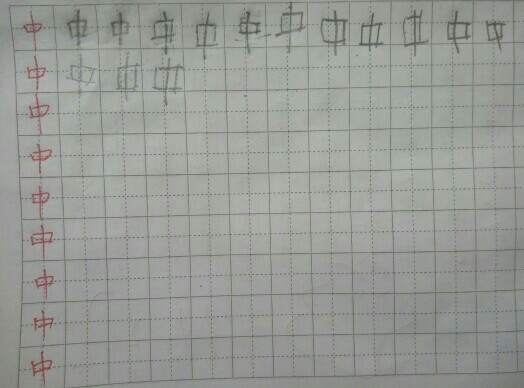 中中中中中中中中中中中中
中中中中
中
中
中
中
中
中
中